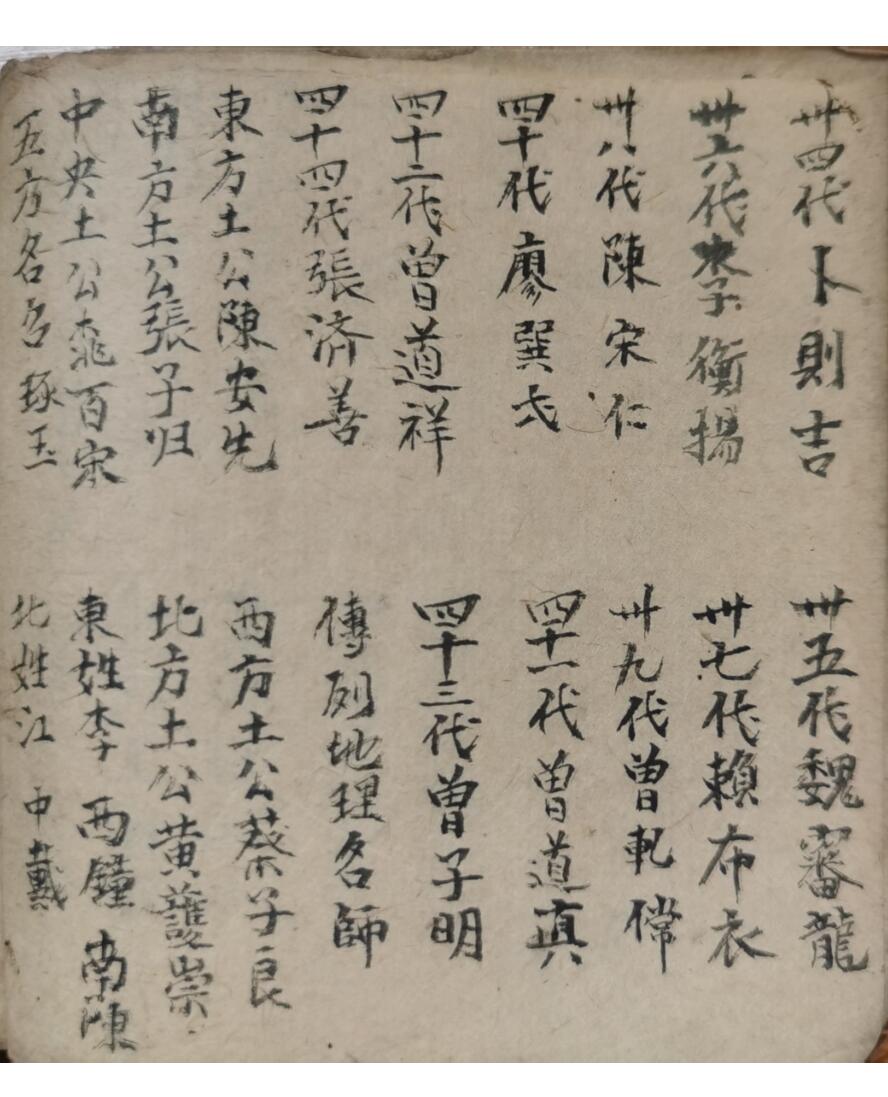 卅四代卜則吉
卅五代魏審龍
卅六代李衡揚
卅七代賴布衣
卅八代陳宋仁
卅九代曾軋儅
四十代廖巽弍
四十一代曾道真
四十二代曾道祥
四十三代曾子明
四十四代張済善
傳列地理名師
東方土公陳安先
西方土公蔡子良
南方土公張子归
北方土公黄護崇
中央土公百宋
東姓李 西鐘 南陳
五方名名琢玉
北姓江 中戴